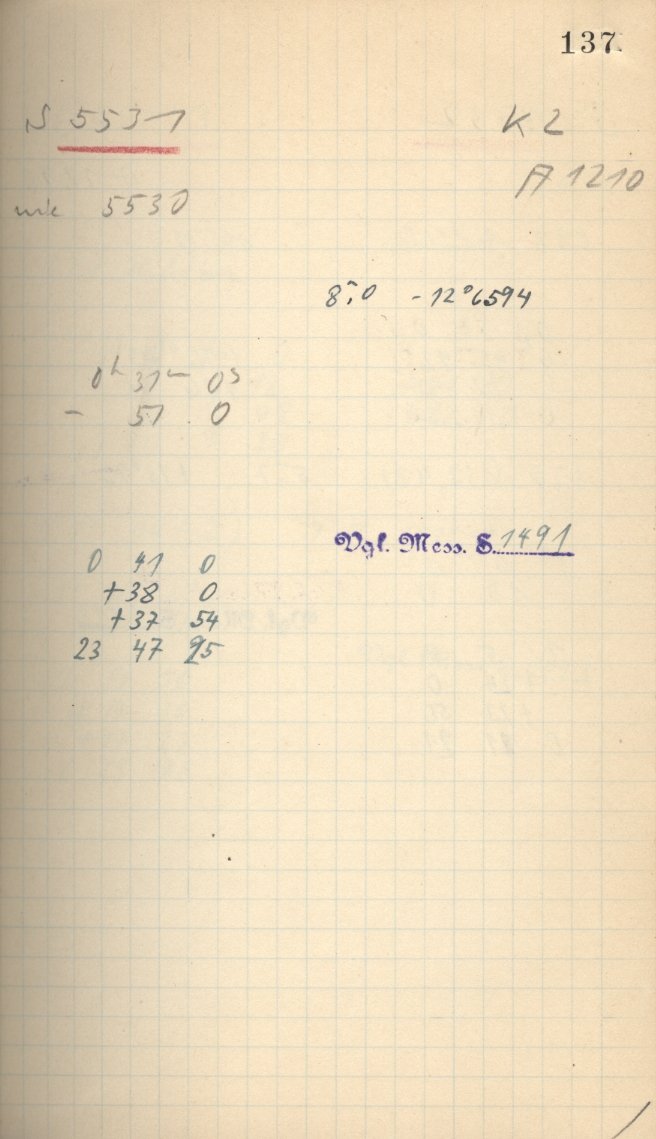 137.
S 5531
K 2
A 1210
wie 5530
8,m0 - 12°6594
0h 31m 0s
- 51 0
Vgl. Mess. S. 1491
0 41 0
+38 0
+37 54
23 47 25